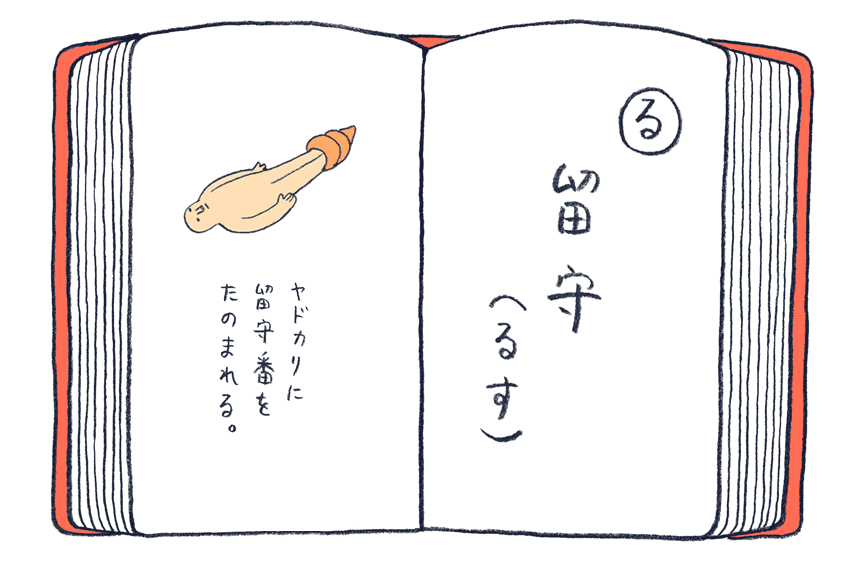 る
留守
（るす）
ヤドカリに
留守番を
たのまれる。